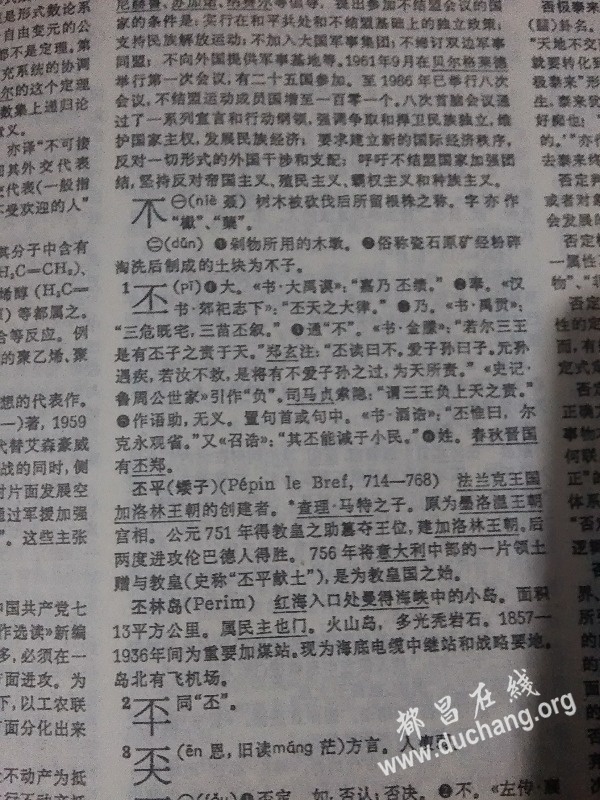 是形式数论系
自由变元的公
都不是定理，第
充系统的协调
尔的这个定理
数集上递归论
意义。
亦译“不可接
间其外交代表
交代表（一般指
不受欢迎的人”
其分子中含有
烯醇
都属之。
合等反应。例
的聚乙烯、聚
想的代表作。
—）著，1959
代替艾森豪威
战的同时，侧
对片面发展空
通过军援加强
”。这些主张
中国共产党七
作选读》新编
多，必须在一
方面进攻。为
下，以工农联
方面分化出来
尼赫鲁、苏加诺、纳赛尔等倡导，提出参加不结盟会议的国
家的条件是：实行在和平共处和不结盟基础上的独立政策；
支持民族解放运动；不加入大国军事集团；不缔订双边军事
同盟；不向外国提供军事基地等。1961年9月在贝尔格莱德
举行第一次会议，有二十五国参加。至1986年已举行八次
会议，不结盟运动成员国增至一百零一个。八次首脑会议通
过了一系列宣言和行动纲领，强调争取和捍卫民族独立，维
护国家主权，发展民族经济；要求建立新的国际经济秩序，
反对一切形式的外国干涉和支配；呼吁不结盟国家加强团
结，坚持反对帝国主义、殖民主义、霸权主义和种族主义。
㊀(niè 聂) 树木被砍伐后所留根株之称。字亦作
㊁(dǔn) ❶剁物所用的木墩。❷俗称瓷石原矿经粉碎
淘洗后制成的土块为不子。
1 丕 (pī)❶大。《书·大禹谟》：“嘉乃丕绩。”❷奉。《汉
书·郊祀志下》：“丕天之大律。”❸乃。《书·禹贡》：
“三危既宅，三苗丕叙。”❹通“不”。《书·金縢》：“若尔三王
是有丕子之责于天。”郑玄注：“丕读曰不。爱子孙曰子。元孙
遇疾，若汝不救，是将有不爱子孙之过，为天所责。”《史记·
鲁周公世家》引作“负”。司马贞索隐：“谓三王负上天之责。”
❺作语助，无义。置句首或句中。《书·酒诰》：“丕惟曰，尔
克永观省。”又《召诰》：“其丕能诚于小民。”❻姓。春秋晋国
有丕郑。
丕平(矮子)(Pépin le Bref, 714—768) 法兰克王国
加洛林王朝的创建者。*查理·马特之子。原为墨洛温王朝
宫相。公元751年得教皇之助篡夺王位，建加洛林王朝。后
两度进攻伦巴德人得胜。756年将意大利中部的一片领土
赠与教皇(史称“丕平献土”)，是为教皇国之始。
丕林岛(Perim) 红海入口处曼得海峡中的小岛。面积
13平方公里。属民主也门。火山岛，多光秃岩石。1857—
1936年间为重要加煤站。现为海底电缆中继站和战略要地。
岛北有飞机场。
2 㔻 同“丕”。
3 奀 (ēn 恩，旧读máng 茫)方言。人瘦弱。
否定，如：否认；否决。❷不。《左传·襄
否极泰来
卦名。
“天地不交
就要转化到
极泰来”形
好魔也：
去泰来终
否定判
或者对象
会发展的
否定概
一属性
物”、“
否定
性的定
定式
否定
正确
事物
何联
正”的
“否定
逻辑
都昌在线
www.duchang.org